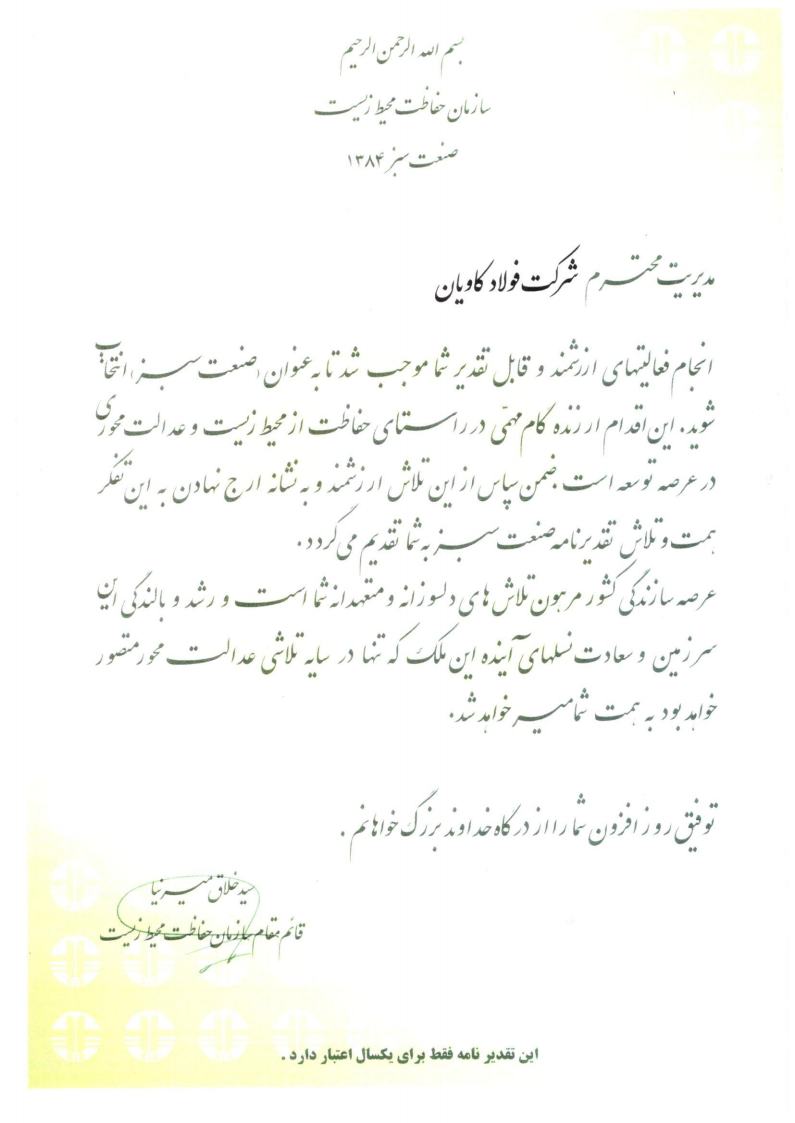 بسم الله الرحمن الرحیم
سازمان حفاظت محیط زیست
صنعت سبز ۱۳۸۴
مدیریت محترم شرکت فولاد کاویان
انجام فعالیتهای ارزشمند و قابل تقدیر شما موجب شد تا به عنوان (صنعت سبز) انتخاب
شوید. این اقدام ارزنده گام مهمّی در راستای حفاظت از محیط زیست و عدالت محوری
در عرصه توسعه است. ضمن سپاس از این تلاش ارزشمند و به نشانه ارج نهادن به این تفکر
همت و تلاش تقدیرنامه صنعت سبز به شما تقدیم می گردد.
عرصه سازندگی کشور مرهون تلاش های دلسوزانه و متعهدانه شما است و رشد و بالندگی این
سرزمین و سعادت نسلهای آینده این ملک که تنها در سایه تلاشی عدالت محور متصور
خواهد بود به همت شما میسر خواهد شد.
توفیق روز افزون شما را از درگاه خداوند بزرگ خواهانم.
سید خلاق میرنیا
قائم مقام سازمان حفاظت محیط زیست
این تقدیر نامه فقط برای یکسال اعتبار دارد.